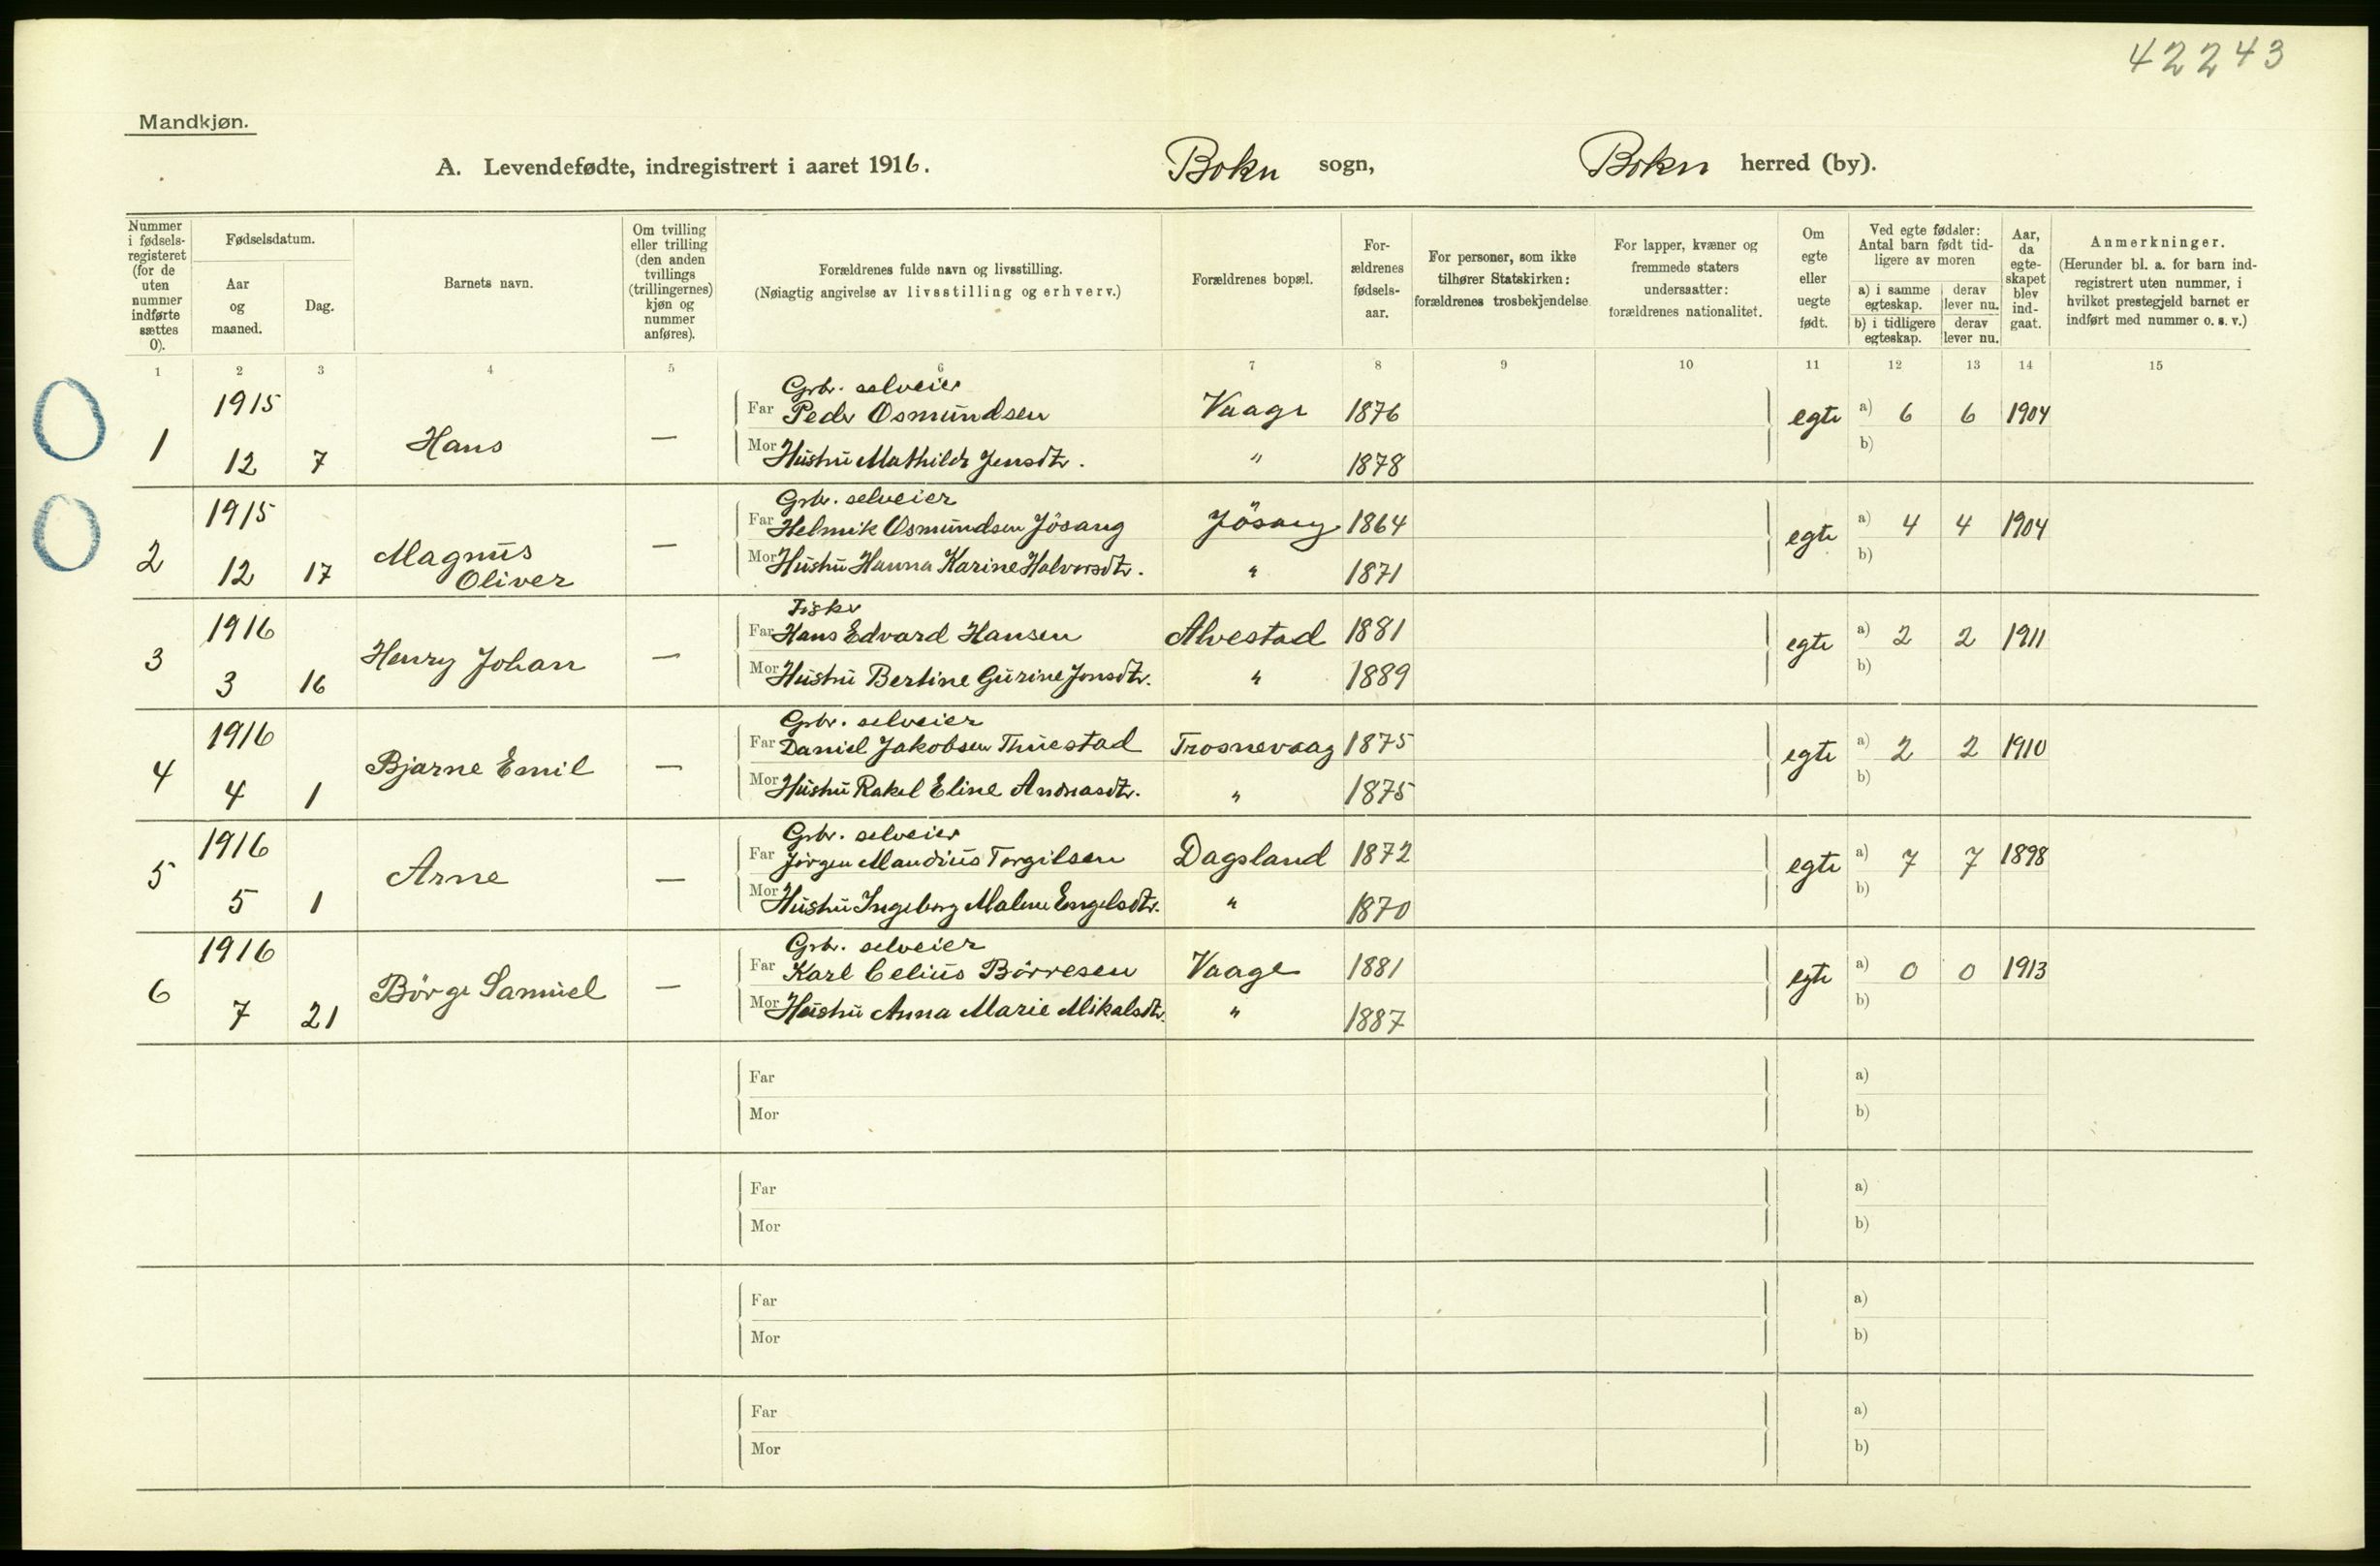 42243
Mandkjøn.
A. Levendefødte, indregistrert i aaret 1916. Bokn sogn, Bokn herred (by).
Nummer i fødsels-registeret (for de uten nummer indførte sættes 0).
Fødselsdatum.
Aar og maaned.
Dag.
Barnets navn.
Om tvilling eller trilling (den anden tvillings (trillingernes) kjøn og nummer anføres).
Forældrenes fulde navn og livsstilling.
(Nøiagtig angivelse av livsstilling og erhverv.)
Forældrenes bopæl.
For-ældrenes fødsels-aar.
For personer, som ikke tilhører Statskirken: forældrenes trosbekjendelse.
For lapper, kvæner og fremmede staters undersaatter: forældrenes nationalitet.
Om egte eller uegte født.
Ved egte fødsler: Antal barn født tid-ligere av moren
a) i samme egteskap.
derav lever nu.
b) i tidligere egteskap.
derav lever nu.
Aar, da egte-skapet blev ind-gaat.
Anmerkninger.
(Herunder bl. a. for barn ind-registrert uten nummer, i hvilket prestegjeld barnet er indført med nummer o. s. v.)
1 2 3 4 5 6 7 8 9 10 11 12 13 14 15
1915 Grbr. selveier
Far Peder Osmundsen Vaage 1876 egte a) 6 6 1904
1 12 7 Hans — Mor Hustru Mathilde Jensdtr. " 1878 b)
1915 Grbr. selveier
Far Helmik Osmundsen Jösang Jösang 1864 egte a) 4 4 1904
2 12 17 Magnus Oliver — Mor Hustru Hanna Karine Halvorsdtr. " 1871 b)
1916 Fisker
Far Hans Edvard Hansen Alvestad 1881 egte a) 2 2 1911
3 3 16 Henry Johan — Mor Hustru Bertine Gurine Jonsdtr. " 1889 b)
1916 Grbr. selveier
Far Daniel Jakobsen Thuestad Trosnevaag 1875 egte a) 2 2 1910
4 4 1 Bjarne Emil — Mor Hustru Rakel Eline Andreasdtr. " 1875 b)
1916 Grbr. selveier
Far Jørgen Mandius Torgilsen Dagsland 1872 egte a) 7 7 1898
5 5 1 Arne — Mor Hustru Ingeborg Malene Engelsdtr. " 1870 b)
1916 Grbr. selveier
Far Karl Celius Börresen Vaage 1881 egte a) 0 0 1913
6 7 21 Börge Samuel — Mor Hustru Anna Marie Mikalsdtr. " 1887 b)
Far a)
Mor b)
Far a)
Mor b)
Far a)
Mor b)
Far a)
Mor b)